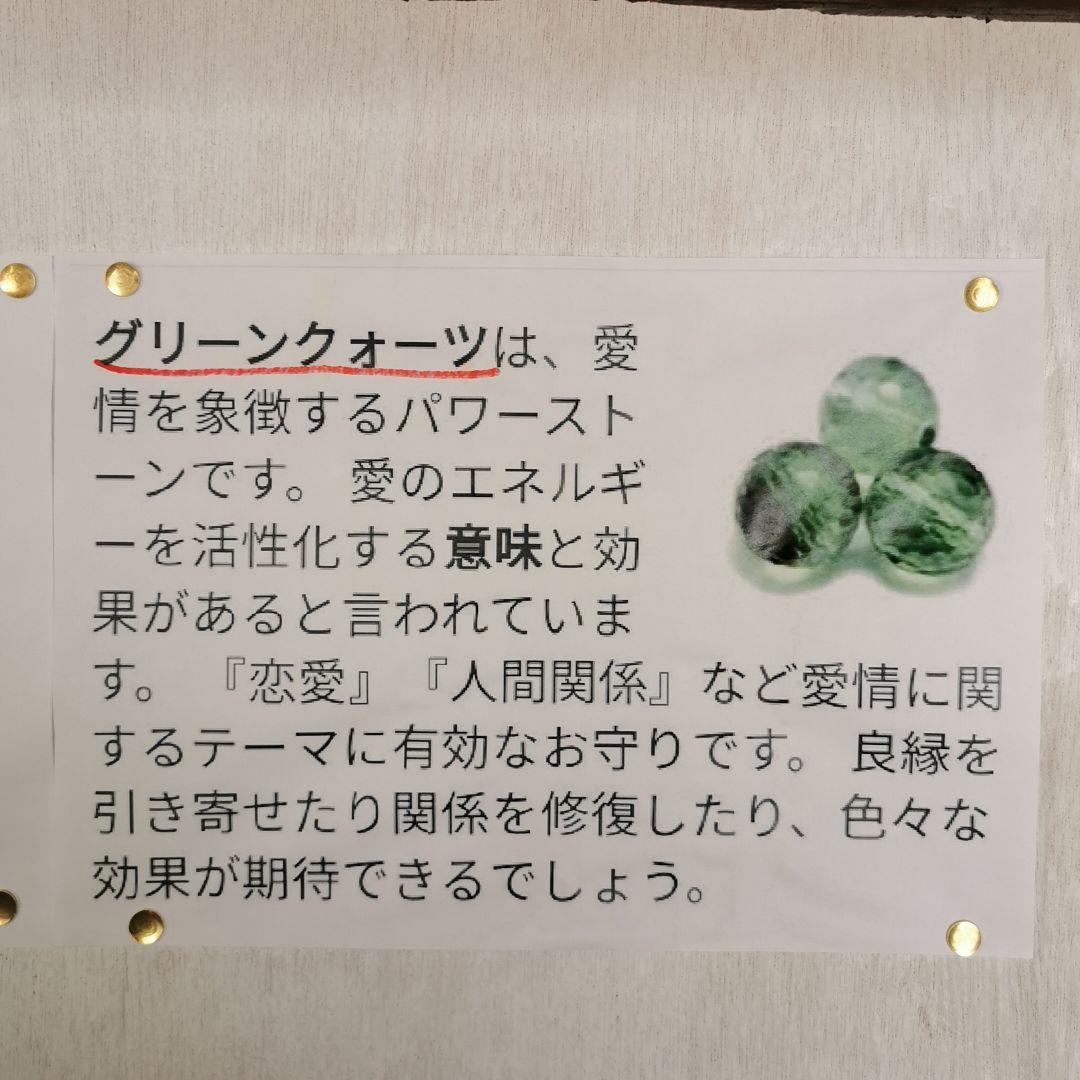 グリーンクォーツは、愛
情を象徴するパワースト
ーンです。 愛のエネルギ
ーを活性化する意味と効
果があると言われていま
す。 『恋愛』『人間関係』など愛情に関
するテーマに有効なお守りです。 良縁を
引き寄せたり関係を修復したり、色々な
効果が期待できるでしょう。